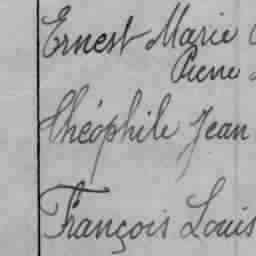 Ernest Marie
Pierre
Théophile Jean
François Louis